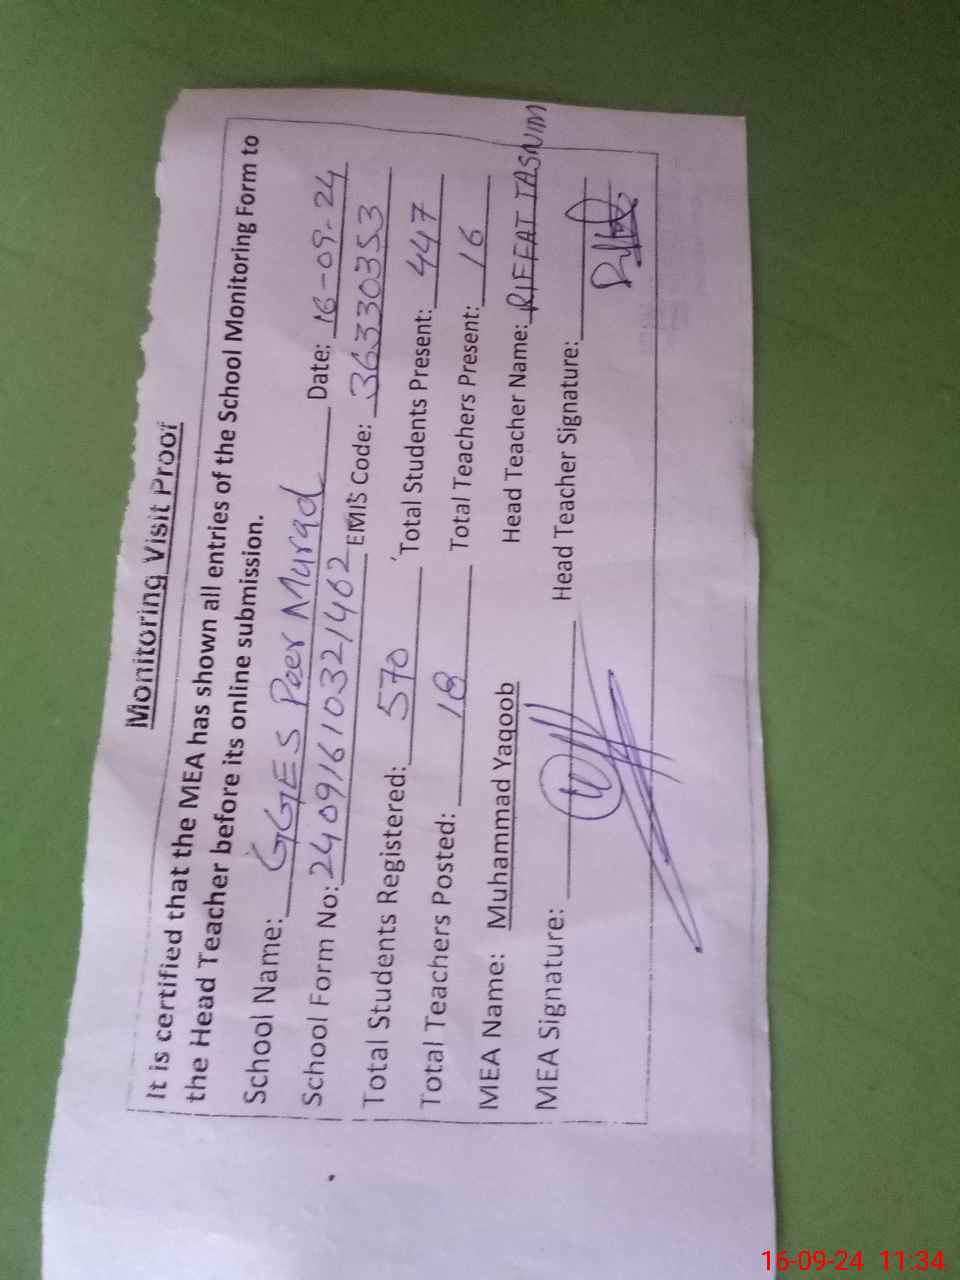 Monitoring Visit Proof
It is certified that the MEA has shown all entries of the School Monitoring Form to
the Head Teacher before its online submission.
School Name: GGES Peer Murad Date: 16-09-24
School Form No: 24091610321462 EMIS Code: 36330353
Total Students Registered: 570 Total Students Present: 447
Total Teachers Posted: 18 Total Teachers Present: 16
MEA Name: Muhammad Yaqoob Head Teacher Name: RIFFAT TASNIM
MEA Signature: Head Teacher Signature:
16-09-24 11:34